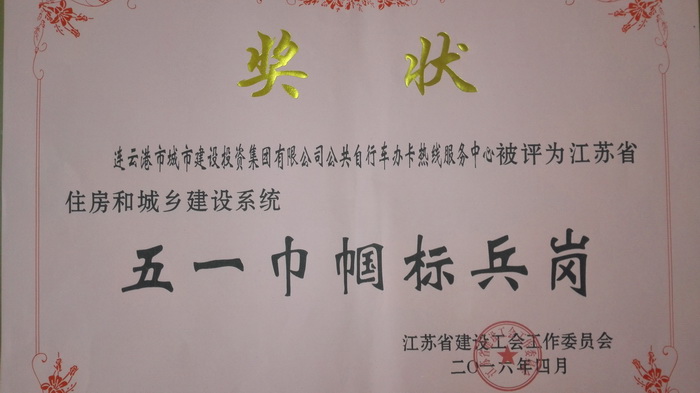 奖状
连云港市城市建设投资集团有限公司公共自行车办卡热线服务中心被评为江苏省
住房和城乡建设系统
五一巾帼标兵岗
江苏省建设工会工作委员会
二〇一六年四月